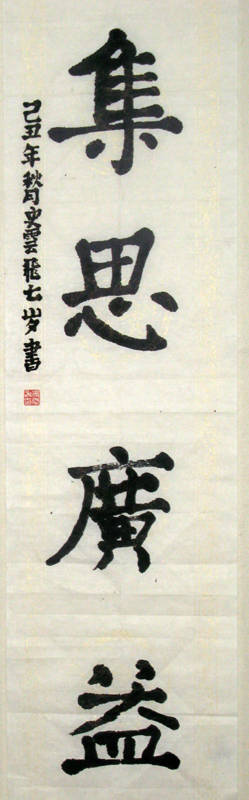 集思廣益
己丑年秋月史雲飛七岁書